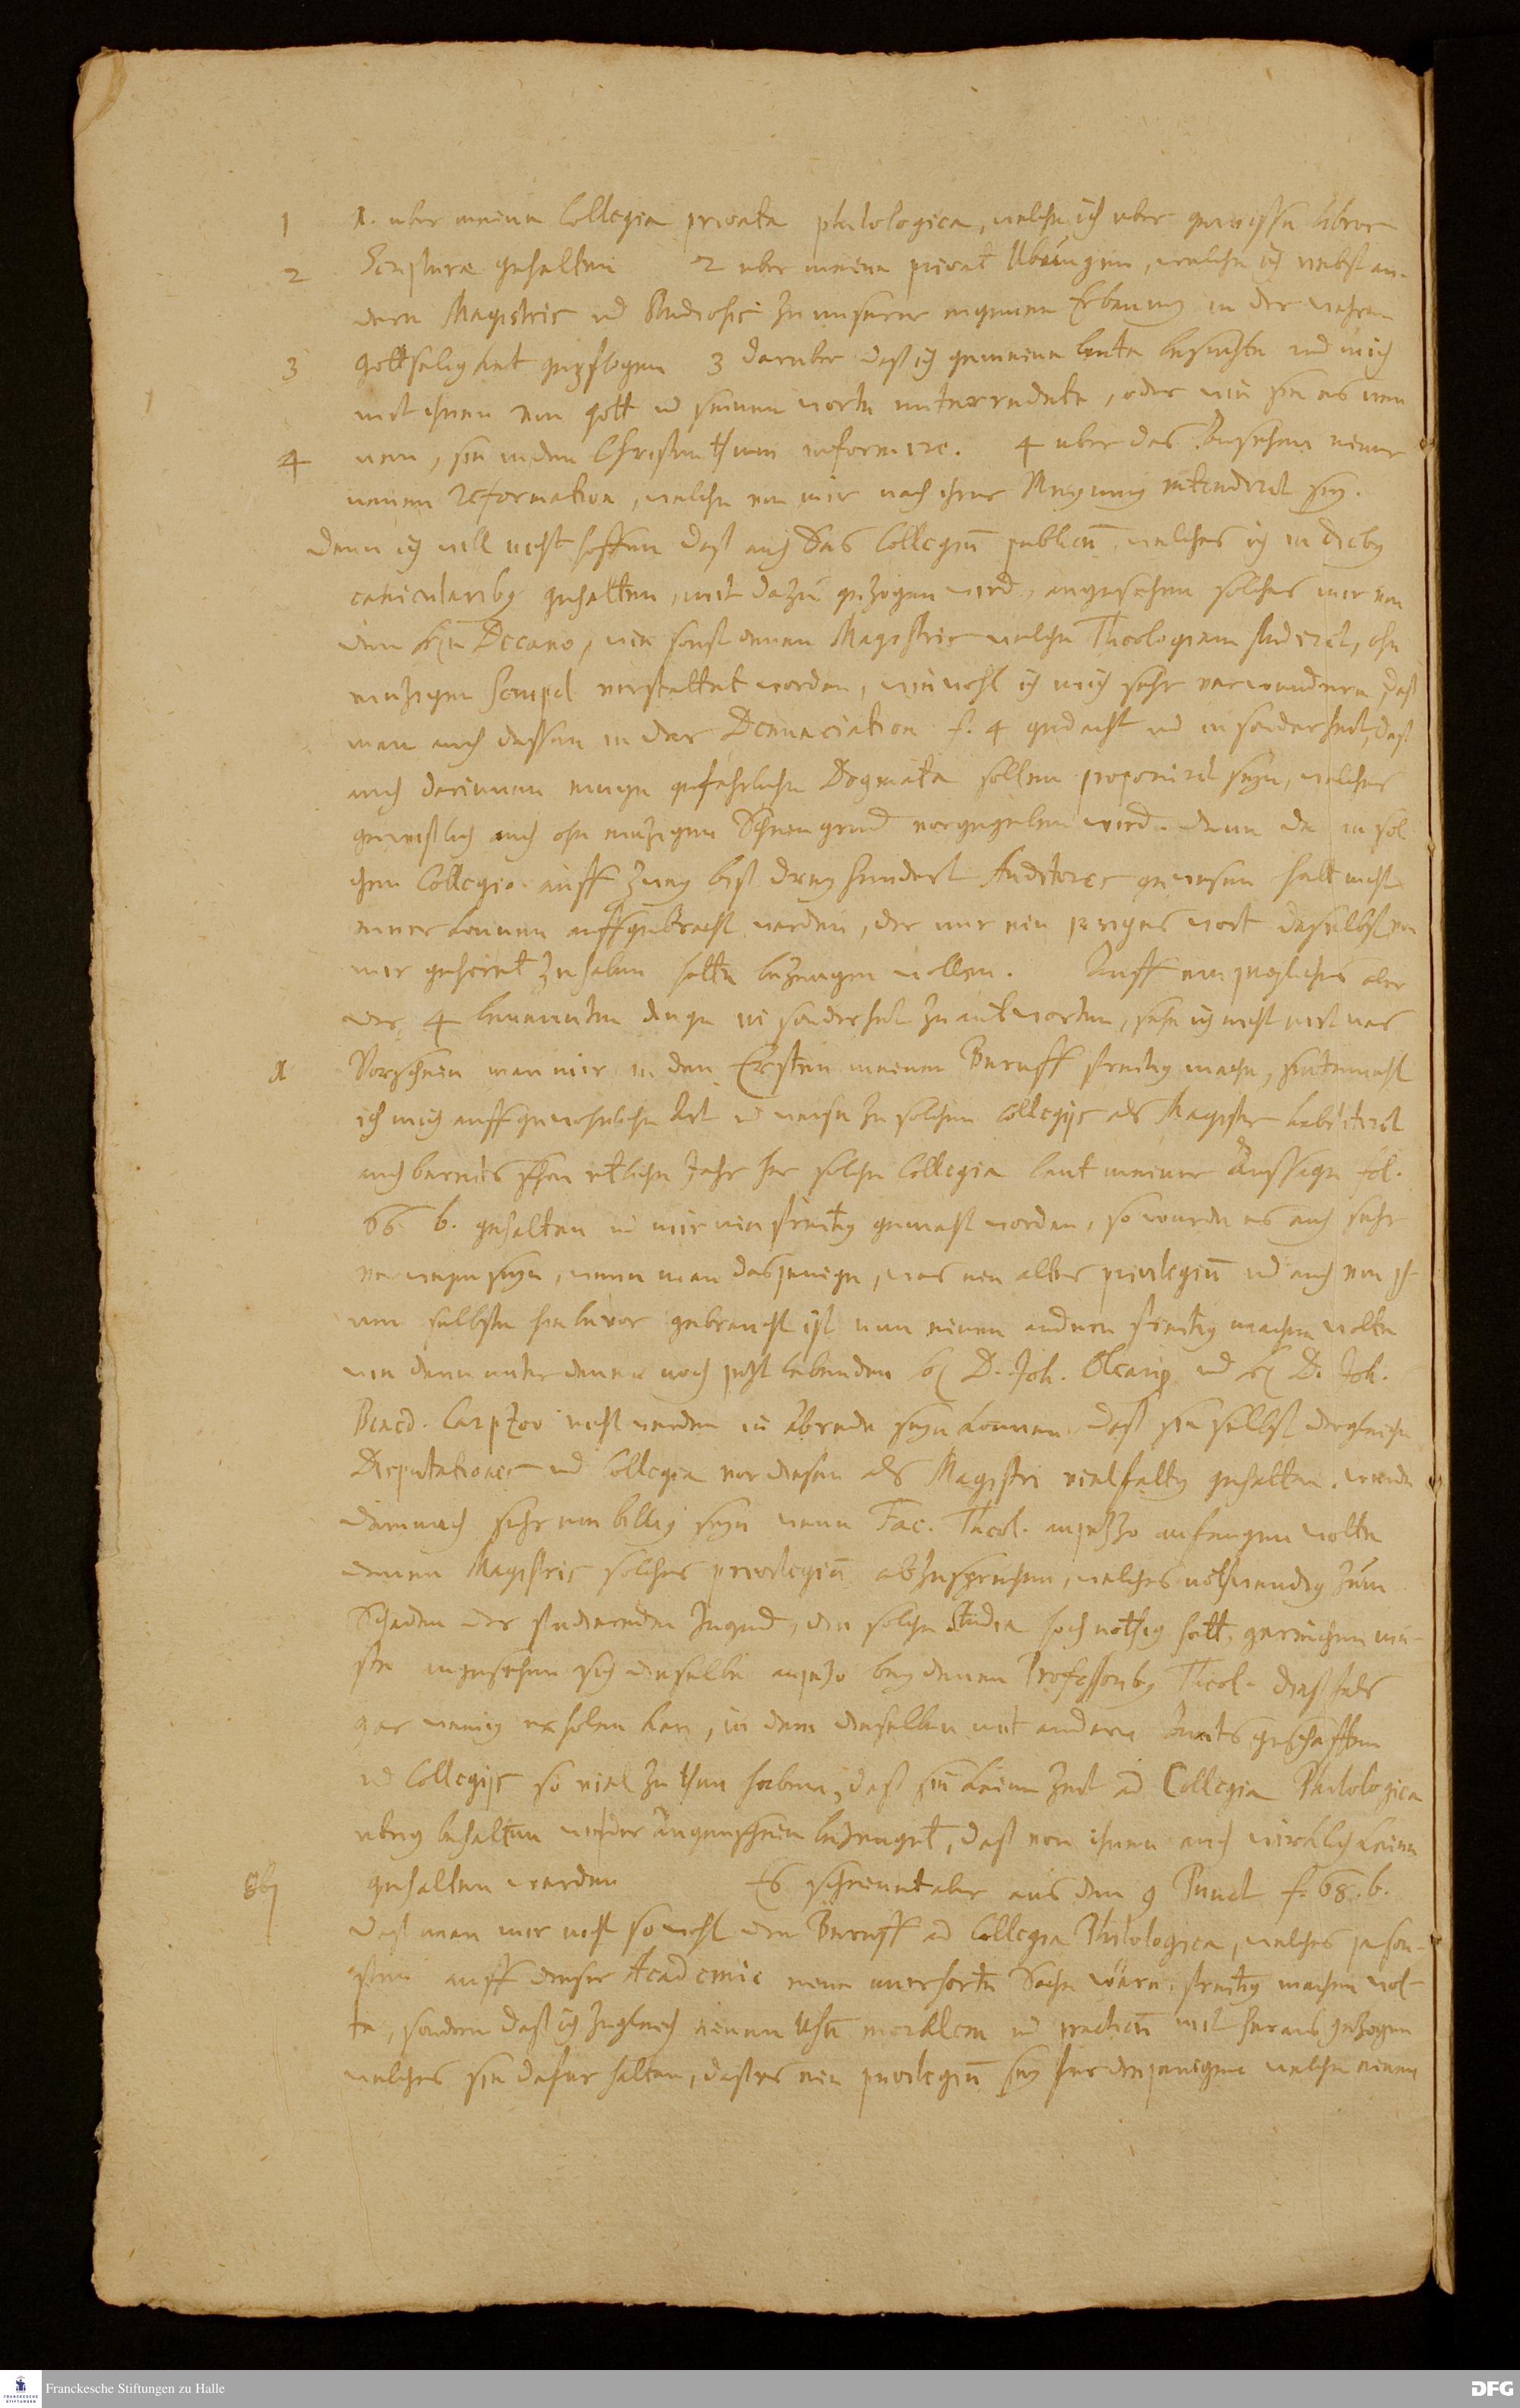 1 1. uber meine Collegia privata philologica, welche ich uber gewisse libros
2 Scripturæ gehalten 2 uber meine privat Ubungen, welche ich nebst an-
dern Magistris ud Studiosis zu unserer eigenen Erbauung in der wahren
3 Gottseligkeit gepflogen 3 daruber daß ich gemeine leute besuchte und mich
mit ihnen von Gott ud seinem worte unterredete, oder wie sie es nen
4 nen, sie in dem Christenthum informire. 4 uber das Ansehen einer
neuen Reformation, welche von mir nach ihrer Meynung intendiret sey.
Denn ich will nicht hoffen daß auch das Collegiū publicū, welches ich in dieby
caniculariby gehalten, mit dazu gezogen wird, angesehen solches mir von
dem H. Decano, wie sonst denen Magistris welche Theologiam studiret, ohn
einzigen Scrupel verstattet worden, wiewohl ich mich sehr verwundere daß
man auch dessen in der Denunciation f. 4 gedacht ud in sonderheit, daß
auch darinnen einige gefahrliche Dogmata sollen proponiret seyn, welches
gewißlich auch ohn einzigen Scheingrund vorgegeben wird. denn da in sol
chen Collegio auff zwey biß drey hundert Auditores gewesen hatt nicht
einer konnen auffgebracht werden, der nur ein irriges wort daselbst von
mir gehoret zu haben hette bezeugen wollen. Auff ein jegliches aber
der 4 benennten dinge in sonderheit zu antworten, sehe ich nicht mit was
1 Vorschein man mir in dem Ersten meinen Beruff streitig mache, sintemahl
ich mich auff gewohnliche Art ud weise zu solchen Collegijs als Magister habilitiret
auch bereits schon etliche Jahr her solche Collegia laut meiner Aussage fol.
66 b. gehalten ud mir nie streitig gemacht worden, so wurde es auch sehr
verwegen seyn, wenn man dasjenige, was ein altes privilegiū ud auch von ih-
nen selbsten hiebevor gebraucht ist nun einem andern streitig machen wolte
wie denn unter denen noch jetzt lebenden H. D. Joh. Oleariy ud H. D. Joh.
Bened. Carpzov nicht werden in abrede seyn konnen, daß sie selbst dergleichen
Disputationes ud Collegia vor diesen als Magistri vielfaltig gehalten. wurde
demnach sehr unbillig seyn wenn Fac. Theol. anjetzo anfangen wolte
denen Magistris solches privilegiū abzusprechen, welches nothwendig zum
Schaden der studierenden Jugend, die solche Studia hochnothig hatt, gereichen mü-
ste ingesehen sich dieselbe anjetzo bey denen Professoriby Theol. dießfals
gar wenig erholen kan, in dem dieselben mit andern Amtsgeschafften
ud Collegijs so viel zu thun haben, daß sie keine Zeit ad Collegia Philologica
ubrig behalten wie der Augenschein bezeuget, daß von ihnen auch wircklich keine
Obj gehalten werden Es scheinet aber aus dem 9 Punct f. 68. b.
daß man mir nicht sowohl den Beruff ad Collegia Philologica, welches ja son-
sten auff dieser Academie eine unerhorte Sache wäre, streitig machen wol-
te, sondern daß ich zugleich einen Usū moralem ud practicū mit heraus gezogen
welches sie dafur halten, daß es ein privilegiū sey fur diejenigen welche einen
Franckesche Stiftungen zu Halle
DFG